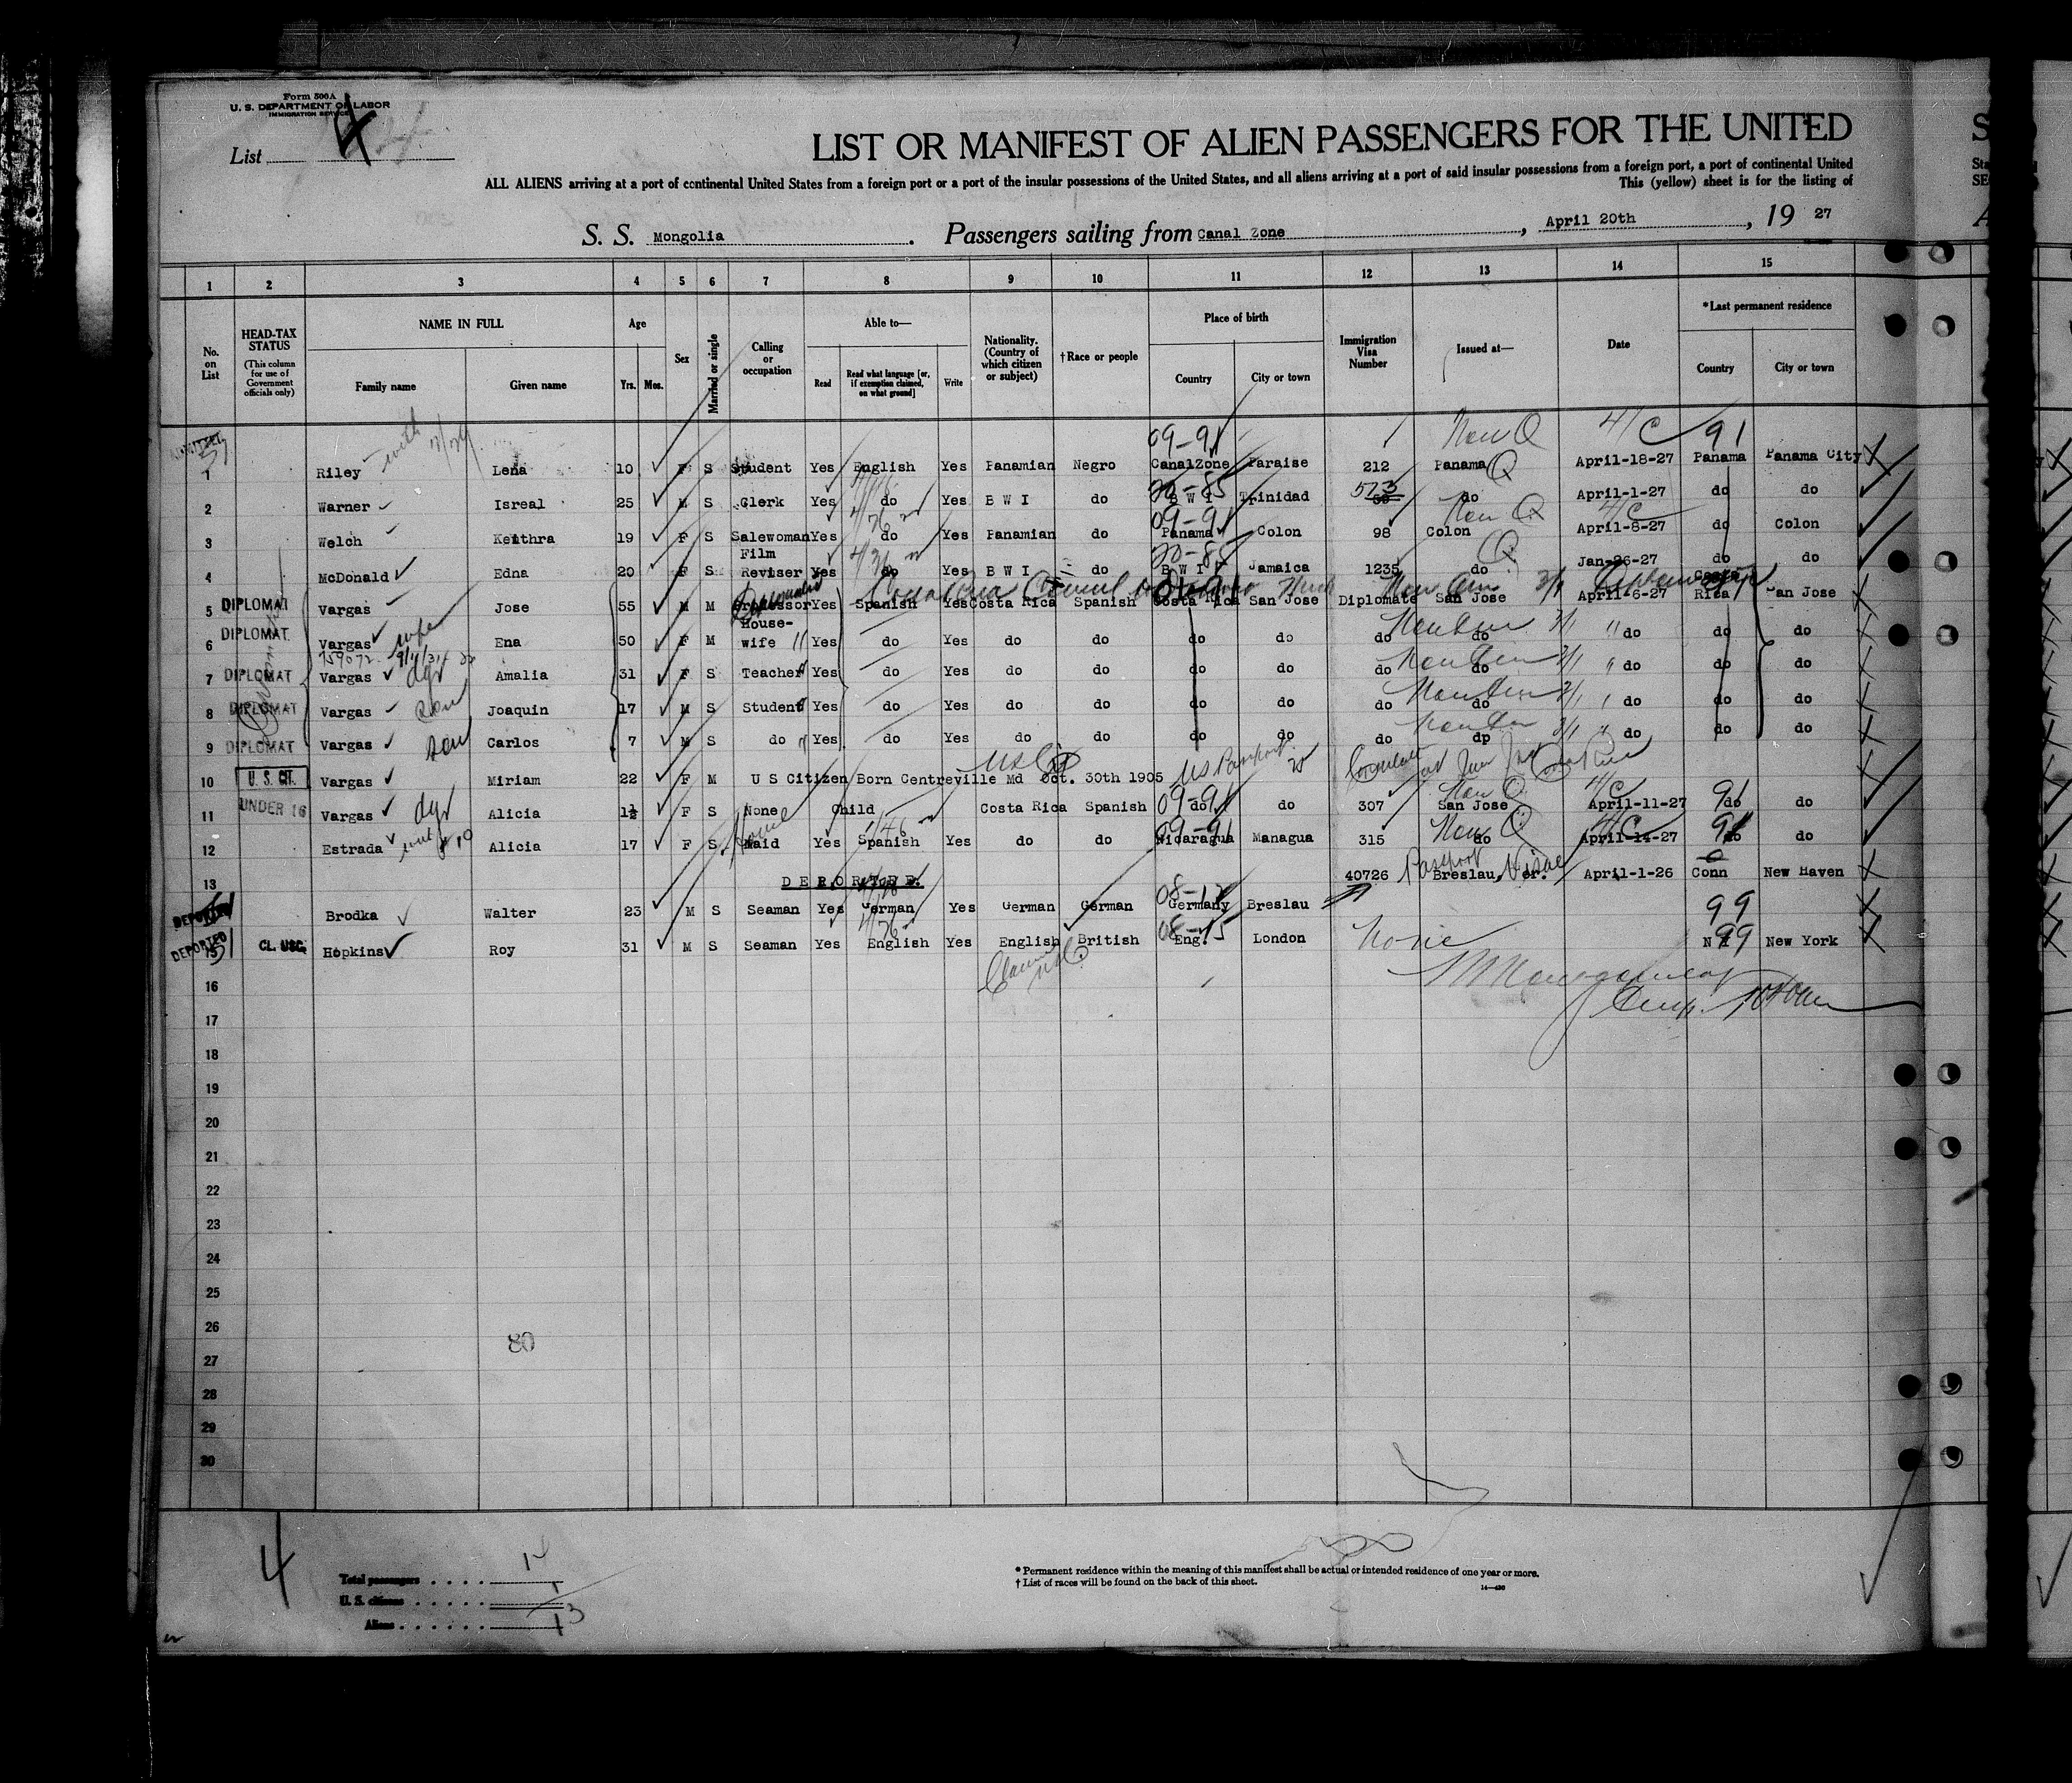 Form 500A
U. S. DEPARTMENT OF LABOR
IMMIGRATION SERVICE
List 4
LIST OR MANIFEST OF ALIEN PASSENGERS FOR THE UNITED
ALL ALIENS arriving at a port of continental United States from a foreign port or a port of the insular possessions of the United States, and all aliens arriving at a port of said insular possessions from a foreign port, a port of continental United
This (yellow) sheet is for the listing of
S. S. Mongolia. Passengers sailing from Canal Zone, April 20th, 19 27
1 2 3 4 5 6 7 8 9 10 11 12 13 14 15
No. on List
HEAD-TAX STATUS (This column for use of Government officials only)
NAME IN FULL Family name Given name
Age Yrs. Mos.
Sex
Married or single
Calling or occupation
Able to— Read Read what language [or, if exemption claimed, on what ground] Write
Nationality. (Country of which citizen or subject)
†Race or people
Place of birth Country City or town
Immigration Visa Number
Issued at—
Date
*Last permanent residence Country City or town
09-91 Non Q 4/C 91
1 Riley Lena 10 F S Student Yes English Yes Panamian Negro CanalZone Paraise 212 Panama April-18-27 Panama Panama City
2 Warner Isreal 25 M S Clerk Yes do Yes B W I do B W I Trinidad 513 do April-1-27 do do
09-91 Non Q 4/C
3 Welch Keithra 19 F S Salewoman Yes do Yes Panamian do Panama Colon 98 Colon April-8-27 do Colon
4 McDonald Edna 20 F S Film Reviser Yes do Yes B W I do B W I Jamaica 1235 do Jan-26-27 do do
5 DIPLOMAT Vargas Jose 55 M M Professor Yes Spanish Yes Costa Rica Spanish Costa Rica San Jose Diplomate San Jose April-6-27 Costa Rica San Jose
6 DIPLOMAT Vargas wife Ena 50 F M House-wife Yes do Yes do do do do do do do do do
7 DIPLOMAT Vargas dgr Amalia 31 F S Teacher Yes do Yes do do do do do do do do do
8 DIPLOMAT Vargas son Joaquin 17 M S Student Yes do Yes do do do do do do do do do
9 DIPLOMAT Vargas son Carlos 7 M S do Yes do Yes do do do do do do do do do
10 U.S. CIT. Vargas Miriam 22 F M U S Citizen Born Centreville Md Oct. 30th 1905 US Passport
11 UNDER 16 Vargas dgr Alicia 1½ F S None Child Costa Rica Spanish do do 307 San Jose April-11-27 do do
12 Estrada Alicia 17 F S Maid Yes Spanish Yes do do Nicaragua Managua 315 do April-14-27 do do
13 DEPORTED. 40726 Passport Breslau, Ger. Visae April-1-26 Conn New Haven
DEPORTED Brodka Walter 23 M S Seaman Yes German Yes German German Germany Breslau 99
DEPORTED 15 CL. USC. Hopkins Roy 31 M S Seaman Yes English Yes English British Eng. London None N Y New York
16
17
18
19
20
21
22
23
24
25
26
27
28
29
30
80
4
Total passengers
U. S. citizens 1
Aliens 13
* Permanent residence within the meaning of this manifest shall be actual or intended residence of one year or more.
† List of races will be found on the back of this sheet.
14—430